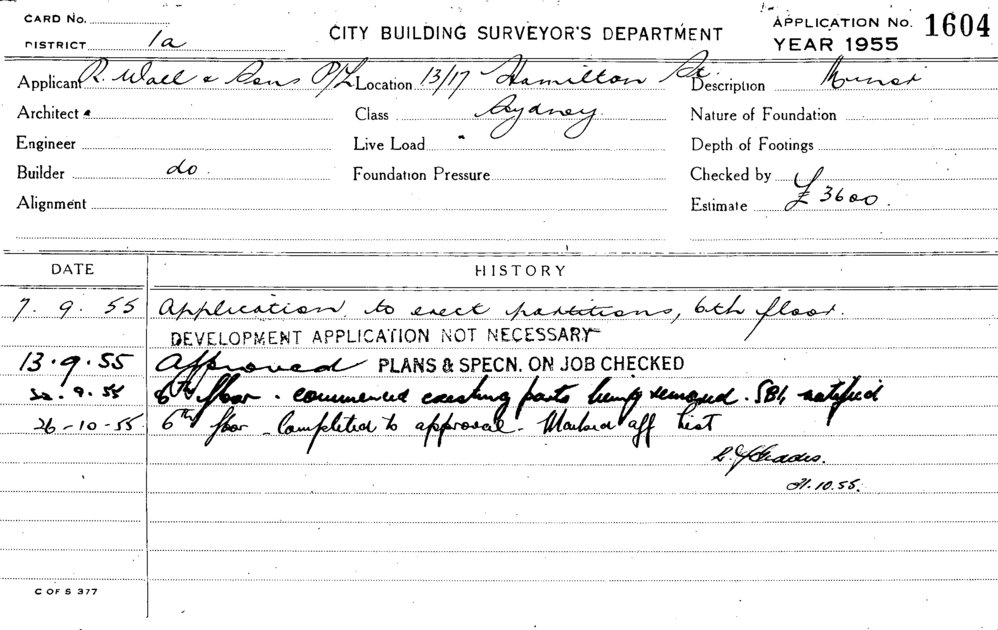 CARD No.
DISTRICT 1a
CITY BUILDING SURVEYOR'S DEPARTMENT
APPLICATION No. 1604
YEAR 1955
Applicant R. Wall & Sons P/L Location 13/17 Hamilton St. Description Minor
Architect Class Sydney Nature of Foundation
Engineer Live Load Depth of Footings
Builder do. Foundation Pressure Checked by
Alignment Estimate £3600.
DATE HISTORY
7. 9. 55 Application to erect partitions, 6th floor.
DEVELOPMENT APPLICATION NOT NECESSARY
13.9.55 Approved PLANS & SPECN. ON JOB CHECKED
9.55 6th floor. commenced existing parts being removed. SBI, notified
26-10-55. 6th floor - Completed to approval. Marked off list
31.10.55.
C OF S 377